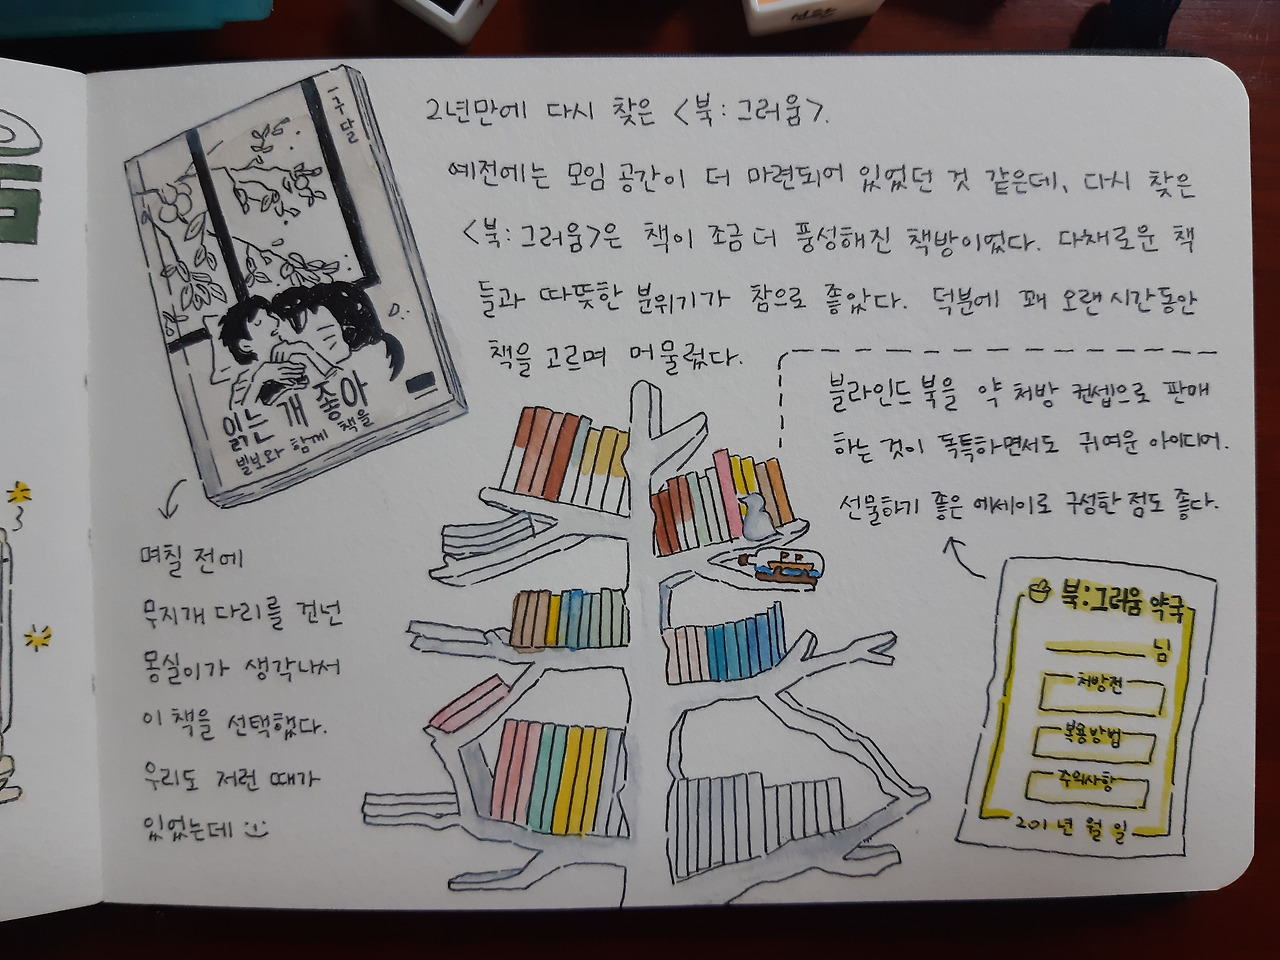 2년만에 다시 찾은 <북:그러움>.
예전에는 모임 공간이 더 마련되어 있었던 것 같은데, 다시 찾은
<북:그러움>은 책이 조금 더 풍성해진 책방이었다. 다채로운 책
들과 따뜻한 분위기가 참으로 좋았다. 덕분에 꽤 오랜 시간동안
책을 고르며 머물렀다.
블라인드 북을 약 처방 컨셉으로 판매
하는 것이 독특하면서도 귀여운 아이디어.
선물하기 좋은 에세이로 구성한 점도 좋다.
구달
읽는 개 좋아
빌보와 함께 책을
며칠 전에
무지개 다리를 건넌
몽실이가 생각나서
이 책을 선택했다.
우리도 저런 때가
있었는데
북:그러움 약국
님
처방전
복용방법
주의사항
201 년 월 일